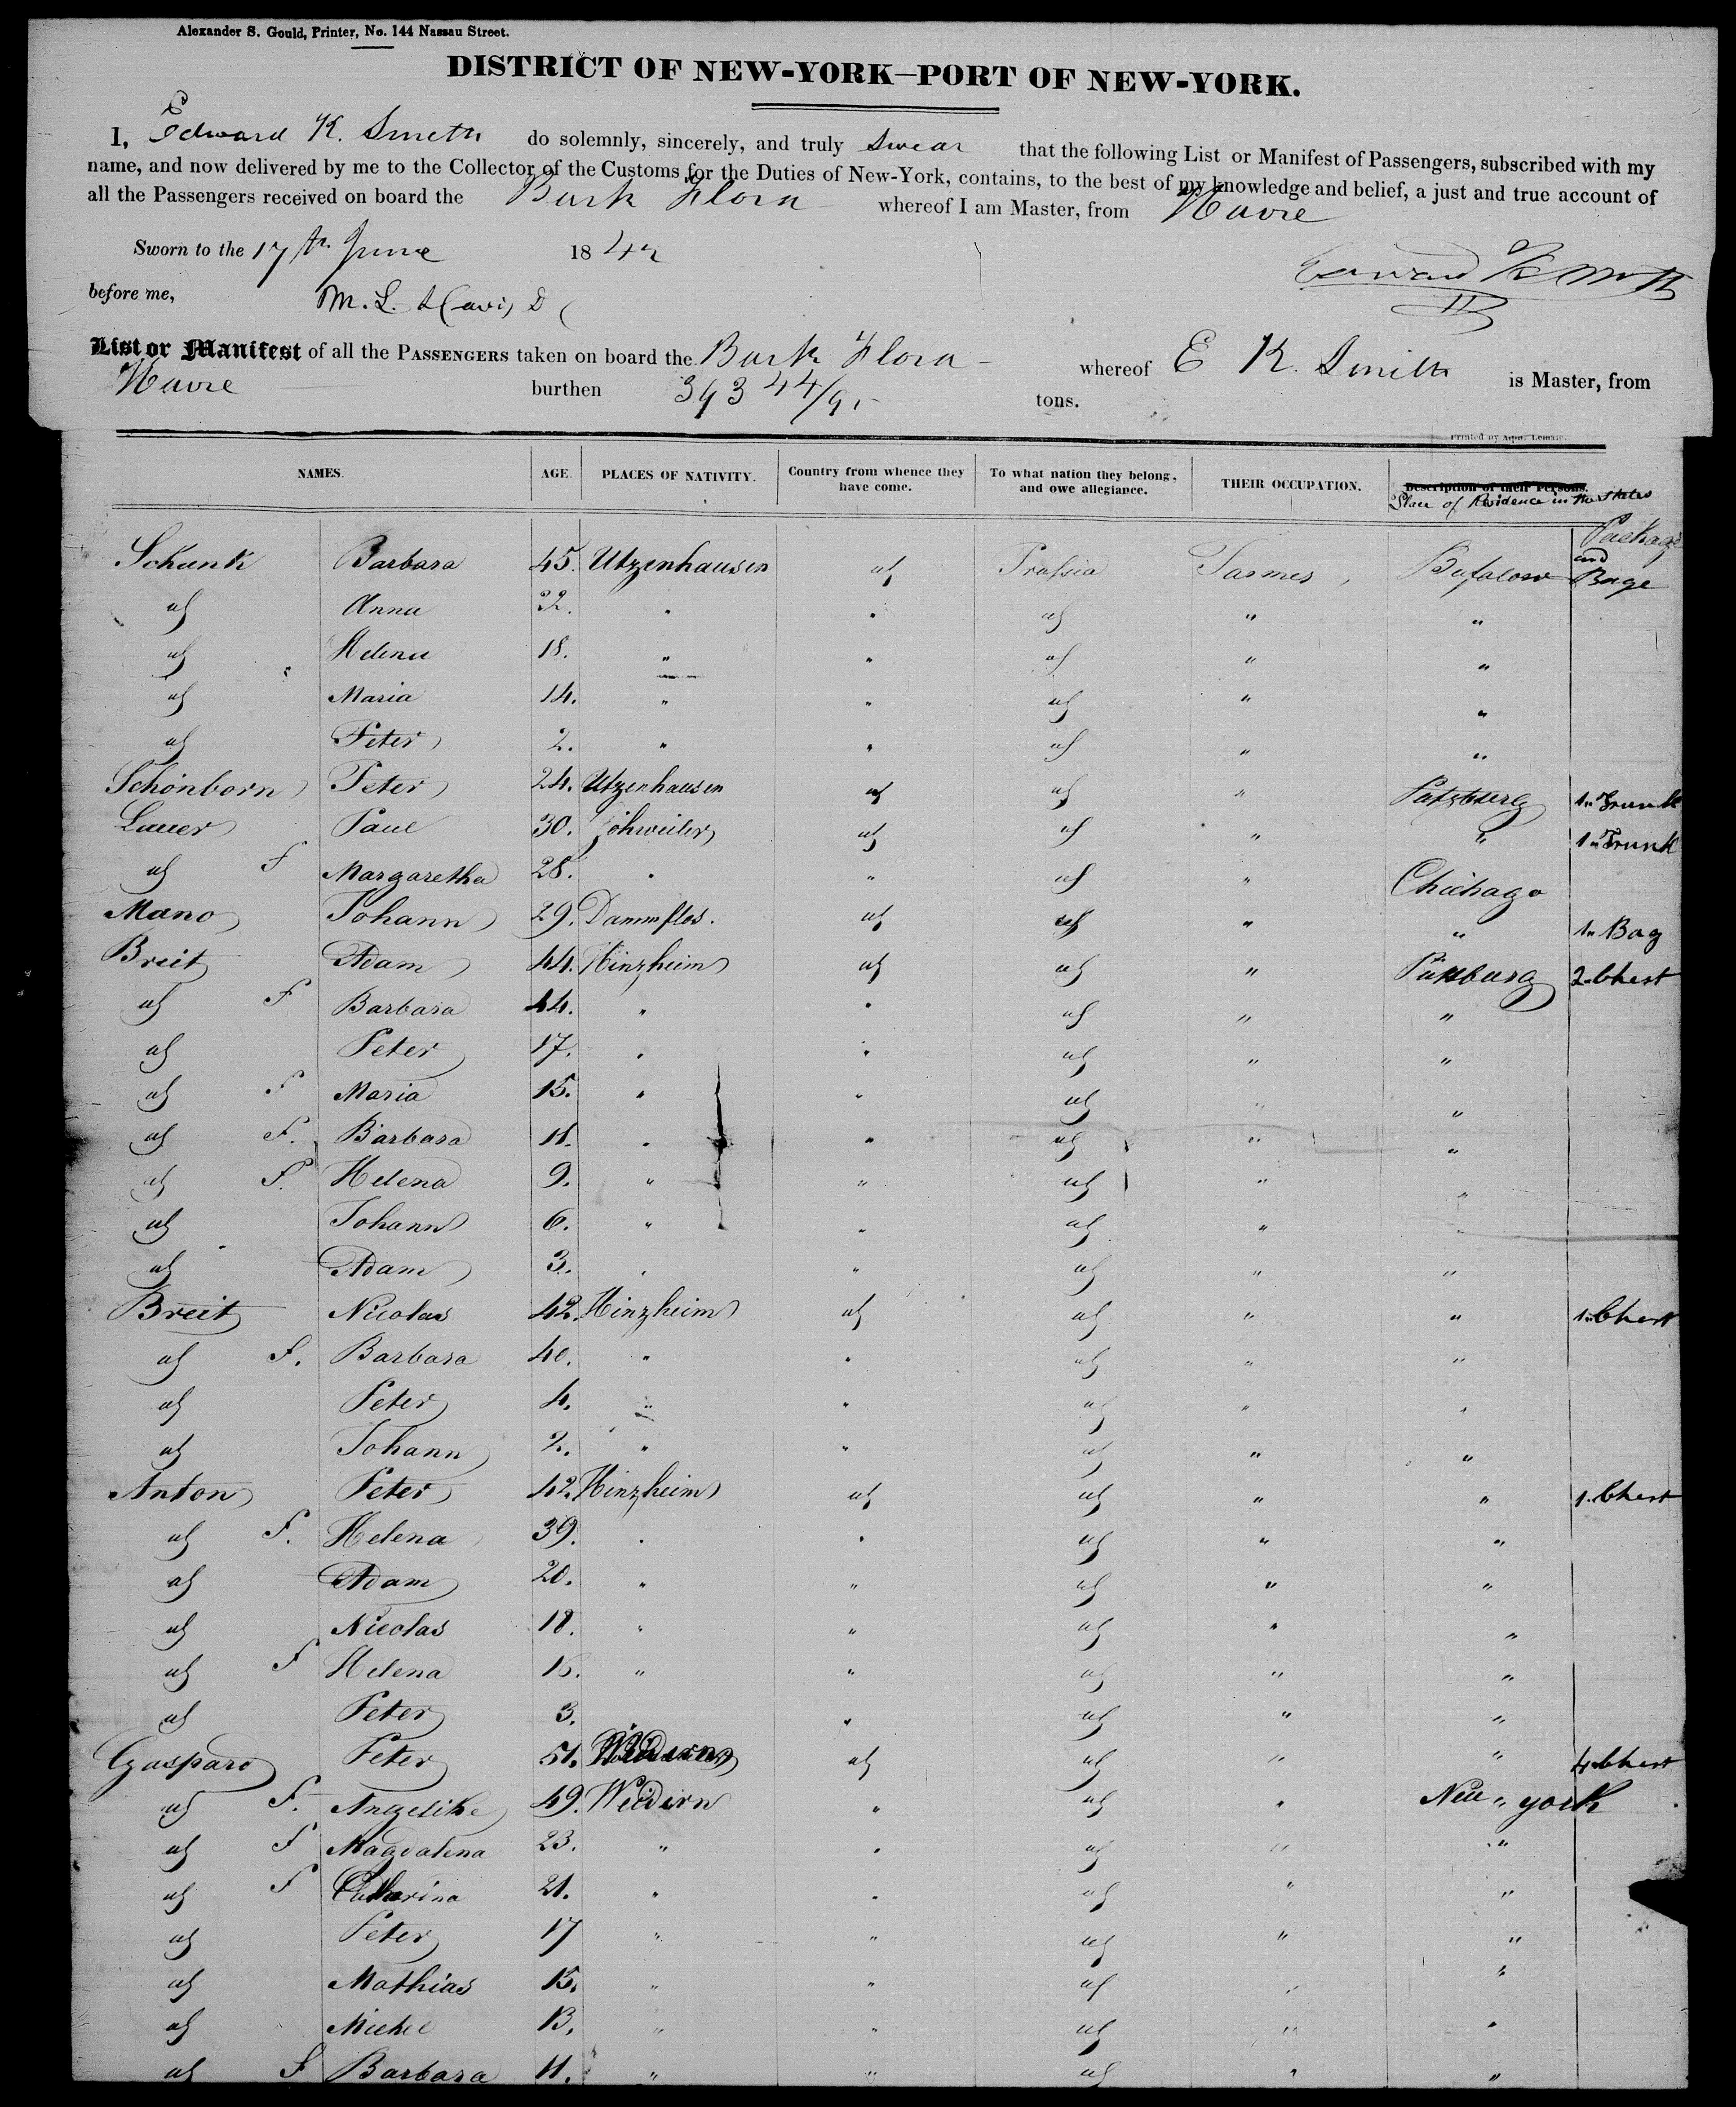 Alexander S. Gould, Printer, No. 144 Nassau Street.
DISTRICT OF NEW-YORK—PORT OF NEW-YORK.
I, Edward K. Smith do solemnly, sincerely, and truly swear that the following List or Manifest of Passengers, subscribed with my
name, and now delivered by me to the Collector of the Customs for the Duties of New-York, contains, to the best of my knowledge and belief, a just and true account of
all the Passengers received on board the Bark Flora whereof I am Master, from Havre
Sworn to the 17th June 1842
before me, M. L. Davis D
Edward K Smith
List or Manifest of all the PASSENGERS taken on board the Bark Flora whereof E K. Smith is Master, from
Havre burthen 393 44/95 tons.
NAMES. AGE. PLACES OF NATIVITY. Country from whence they have come. To what nation they belong, and owe allegiance. THEIR OCCUPATION. Description of their Persons.
Place of Residence in the States
Package and
Schunk Barbara 45. Utzenhausen " Prussia Farmer Bufalow Bage
" Anna 22. " " " " "
" Helena 18. " " " " "
" Maria 14. " " " " "
" Peter 2. " " " " "
Schönborn Peter 24. Utzenhausen " " " 1" Trunk
Lauer Paul 30. " " " " 1" Trunk
" F Margaretha 28. " " " " Chichago
Mano Johann 29. Dammflos. " " " " 1" Bag
Breit Adam 44. Hinzheim " " " 2" Chest
" F Barbara 44. " " " " "
" Peter 17. " " " " "
" F Maria 15. " " " " "
" F. Barbara 11. " " " " "
" F. Helena 9. " " " " "
" Johann 6. " " " "
" Adam 3. " " " " "
Breit Nicolas 42. Hinzheim " " " " 1" Chest
" F. Barbara 40. " " " " "
" Peter 4. " " " " "
" Johann 2. " " " " "
Anton Peter 42. Hinzheim " " " " 1. Chest
" F. Helena 39. " " " " "
" Adam 20. " " " " "
" Nicolas 18. " " " " "
" F Helena 16. " " " " "
" Peter 3. " " " " "
Gaspard Peter 51. " " " " 4 Chest
" F. Angelike 49. Weidirn " " " New-york
" F Magdalena 23. " " " " "
" F Catharina 21. " " " " "
" Peter 17 " " " " "
" Mathias 15. " " " " "
" Michel 13. " " " " "
" F Barbara 11. " " " " "